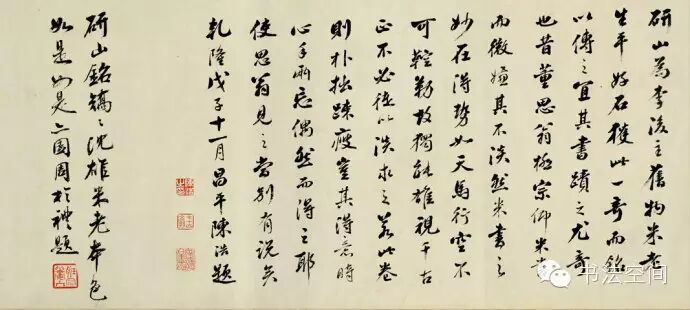 研山為李後主舊物米老
生平好石獲此一奇而銘
以傳之宜其書蹟之尤奇
也昔董思翁極宗仰米書
而微嫌其不淡然米書之
妙在得勢如天馬行空不
可鞚勒故獨能雄視千古
正不必徒以淡求之若此卷
則朴拙疎瘦豈其得意時
心手兩忘偶然而得之耶
使思翁見之當別有說矣
乾隆戊子十一月昌平陳浩題
研山銘沈雄米老本色
如是如是亦園周於禮題
书法空间